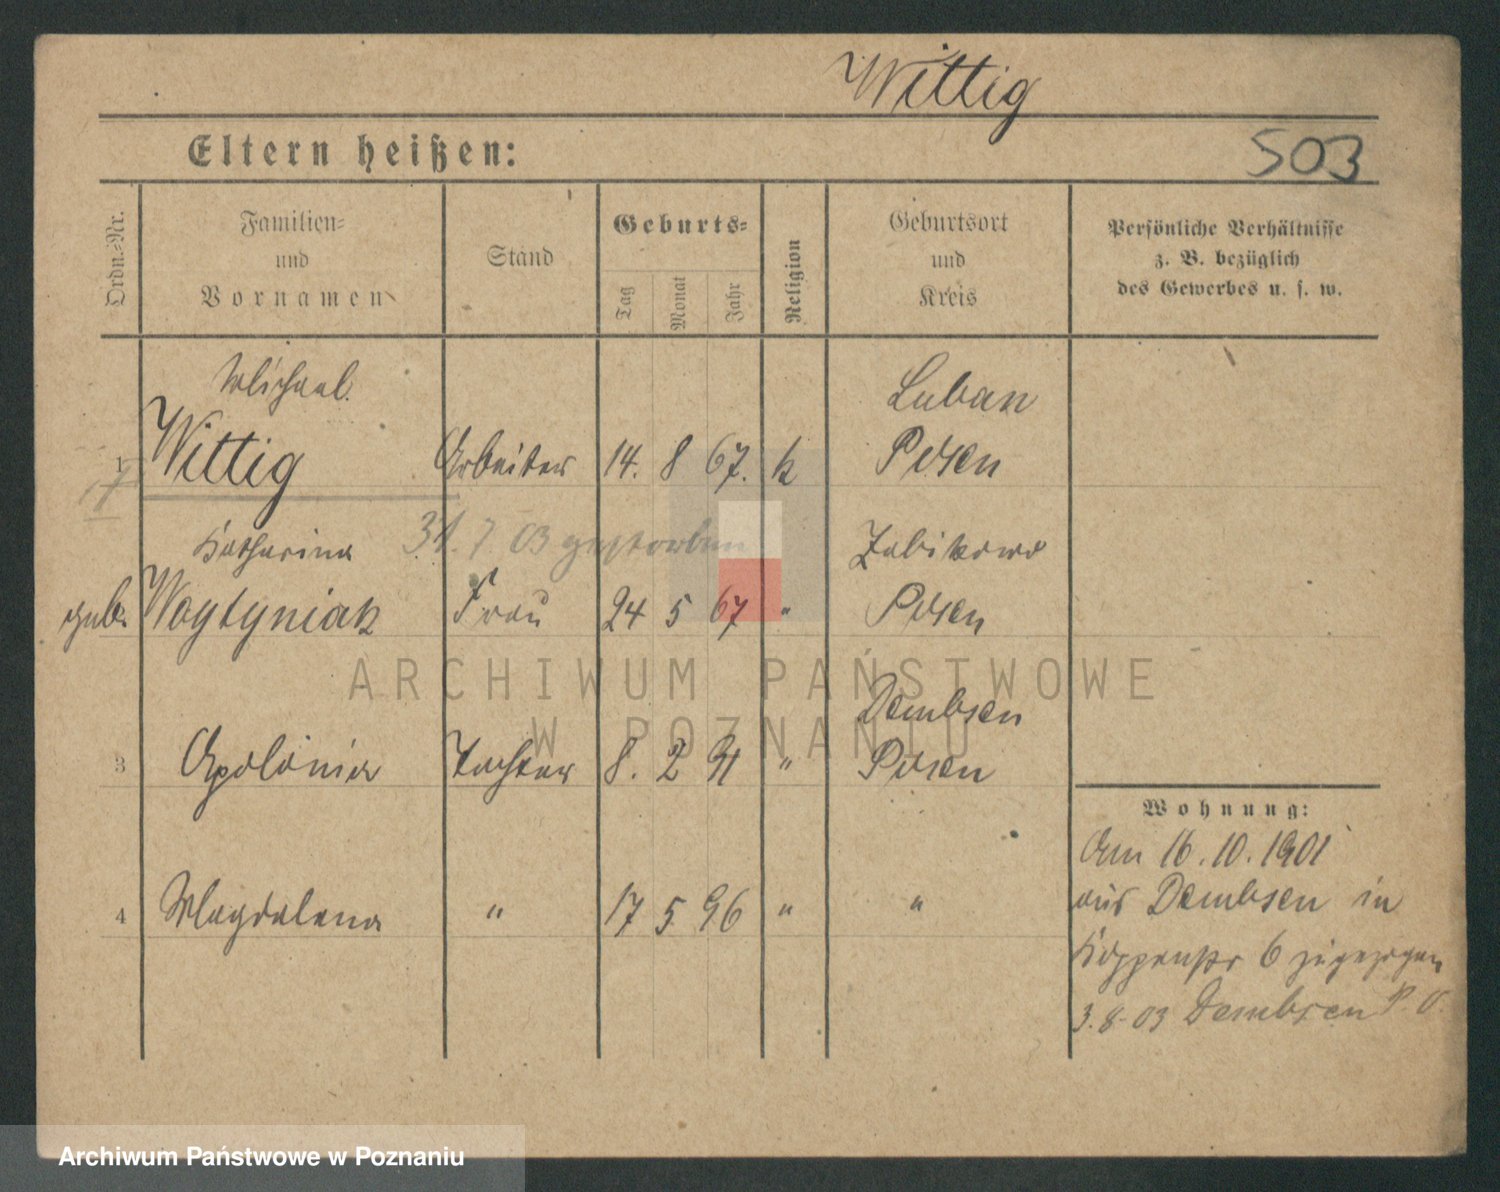 Wittig
Eltern heißen:
503
Ordn.-Nr.
Familien-
und
Vornamen
Stand
Geburts-
Tag
Monat
Jahr
Religion
Geburtsort
und
Kreis
Persönliche Verhältnisse
z. B. bezüglich
des Gewerbes u. s. w.
Michael
Luban
1 Wittig Arbeiter 14. 8 67. k Posen
Katharina 31. 7. 03 gestorben Zabikowo
geb. Woytyniak Frau 24 5 67 " Posen
Dembsen
3 Apolonia Tochter 8. 2 91 " Posen
4 Magdalena " 17 5 96 " "
Wohnung:
Am 16.10.1901
aus Dembsen in
6 zugezogen
3.8.03 Dembsen P. O.
ARCHIWUM PAŃSTWOWE
W POZNANIU
Archiwum Państwowe w Poznaniu